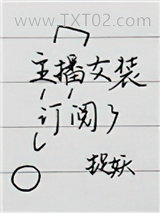 www.TXT02.com
主播女装
订阅了
捉妖